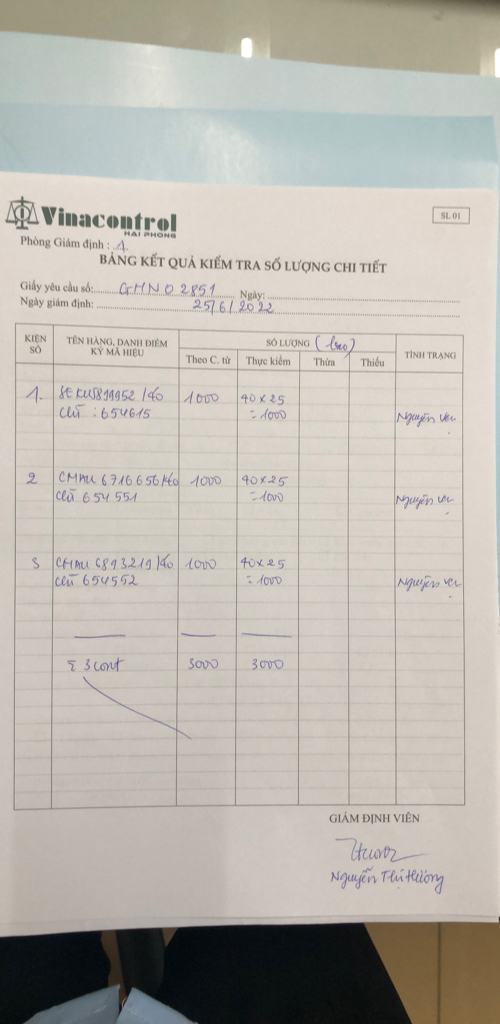 Vinacontrol
HAI PHONG
SL 01
Phòng Giám định : 1
BẢNG KẾT QUẢ KIỂM TRA SỐ LƯỢNG CHI TIẾT
Giấy yêu cầu số: GHNO 2851 Ngày:
Ngày giám định: 25/6/2022
KIỆN SỐ TÊN HÀNG, DANH ĐIỂM KÝ MÃ HIỆU SỐ LƯỢNG (bao) TÌNH TRẠNG
Theo C. từ Thực kiểm Thừa Thiếu
1. /40 1000 40 x 25
chì : 654615 = 1000 Nguyên vẹn
2 CMAU 6716656/40 1000 40 x 25
chì 654551 = 1000 Nguyên vẹn
3 CMAU 6893219/40 1000 40 x 25
chì 654552 = 1000 Nguyên vẹn
Σ 3 cont 3000 3000
GIÁM ĐỊNH VIÊN
Nguyễn Thị Hương